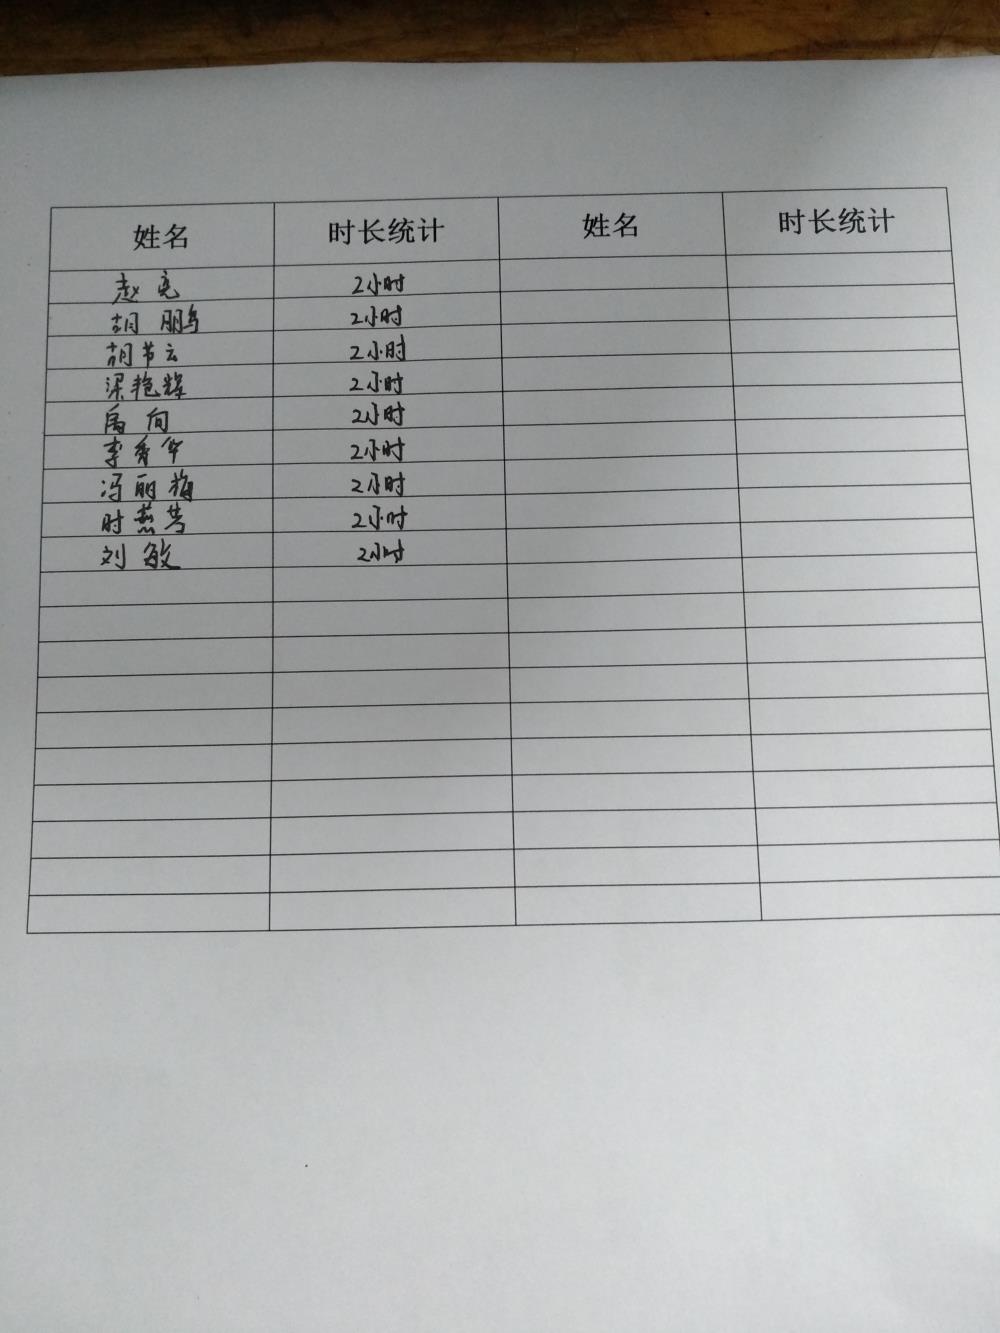 姓名 时长统计 姓名 时长统计
赵亮 2小时
胡鹏 2小时
胡节云 2小时
梁艳辉 2小时
禹间 2小时
李秀华 2小时
冯丽梅 2小时
时燕芳 2小时
刘敏 2小时